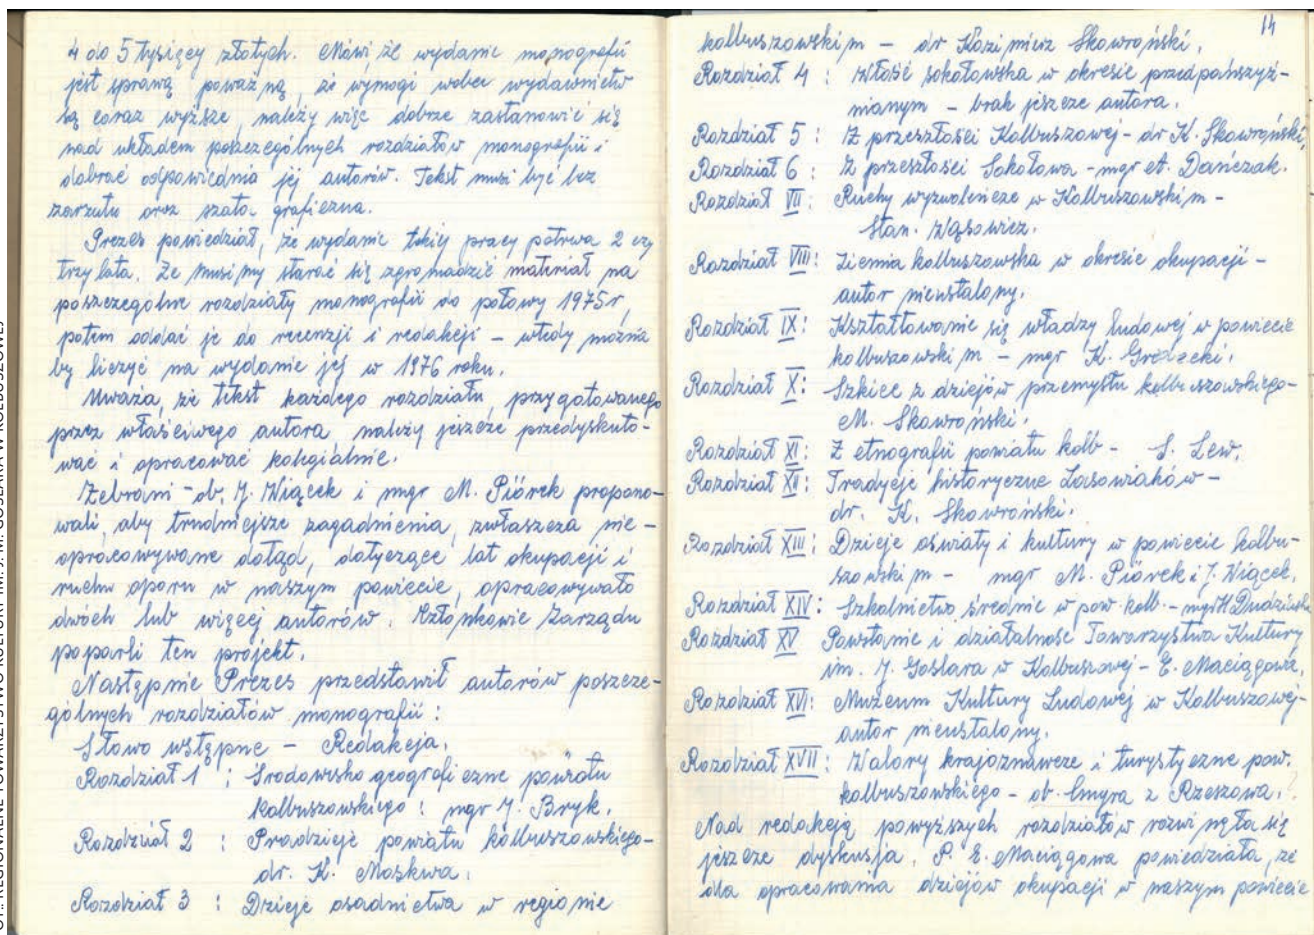 4 do 5 tysięcy złotych. Mówi że wydanie monografii
jest sprawą poważną, że wymogi wobec wydawnictw
są coraz wyższe, należy więc dobrze zastanowić się
nad układem poszczególnych rozdziałów monografii i
dobrać odpowiednio jej autorów. Tekst musi być bez
zarzutu oraz szata graficzna.
Prezes powiedział, że wydanie takiej pracy potrwa 2 czy
trzy lata. Że musimy starać się zgromadzić materiał na
poszczególne rozdziały monografii do połowy 1975 r,
potem oddać je do recenzji i redakcji – wtedy można
by liczyć na wydanie jej w 1976 roku.
Uważa, że tekst każdego rozdziału, przygotowanego
przez właściwego autora, należy jeszcze przedyskuto-
wać i opracować kolegialnie.
Zebrani – ob. J. Wiącek i mgr M. Piórek propono-
wali, aby trudniejsze zagadnienia, zwłaszcza nie-
opracowywane dotąd, dotyczące lat okupacji i
ruchu oporu w naszym powiecie, opracowywało
dwóch lub więcej autorów. Członkowie Zarządu
poparli ten projekt.
Następnie Prezes przedstawił autorów poszcze-
gólnych rozdziałów monografii:
Słowo wstępne – Redakcja.
Rozdział 1 : Środowisko geograficzne powiatu
kolbuszowskiego : mgr J. Bryk.
Rozdział 2 : Pradzieje powiatu kolbuszowskiego-
dr. K. Moskwa.
Rozdział 3 : Dzieje osadnictwa w regionie
14
kolbuszowskim – dr Kazimierz Skowroński.
Rozdział 4 : Włość sokołowska w okresie przedpańszczyź-
nianym – brak jeszcze autora.
Rozdział 5 : Z przeszłości Kolbuszowej – dr K. Skowroński.
Rozdział 6 : Z przeszłości Sokołowa – mgr A. Dańczak.
Rozdział VII : Ruchy wyzwoleńcze w Kolbuszowskim –
Stan. Wąsowicz.
Rozdział VIII : Ziemia kolbuszowska w okresie okupacji –
autor nieustalony.
Rozdział IX : Kształtowanie się władzy ludowej w powiecie
kolbuszowskim – mgr K. Grodzcki.
Rozdział X : Szkice z dziejów przemysłu kolbuszowskiego-
M. Skowroński.
Rozdział XI : Z etnografii powiatu kolb – S. Lew.
Rozdział XII : Tradycje historyczne Lasowiaków –
dr. K. Skowroński.
Rozdział XIII : Dzieje oświaty i kultury w powiecie kolbu-
szowskim – mgr M. Piórek i J. Wiącek.
Rozdział XIV : Szkolnictwo średnie w pow. kolb. – mgr H. Dudzińsk
Rozdział XV Powstanie i działalność Towarzystwa Kultury
im. J. Goslara w Kolbuszowej – E. Maciągowa,
Rozdział XVI : Muzeum Kultury Ludowej w Kolbuszowej-
autor nieustalony.
Rozdział XVII : Walory krajoznawcze i turystyczne pow.
kolbuszowskiego – ob. Cmyra z Rzeszowa.?
Nad redakcją powyższych rozdziałów rozwinęła się
jeszcze dyskusja. P. E. Maciągowa powiedziała, że
dla opracowania dziejów okupacji w naszym powiecie